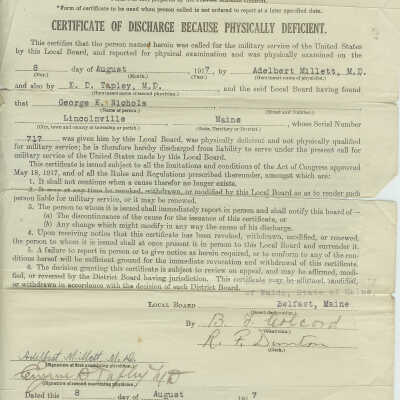 *Form of certificate to be used when person called is not ordered to report at a later specified date.
CERTIFICATE OF DISCHARGE BECAUSE PHYSICALLY DEFICIENT.
This certifies that the person named herein was called for the military service of the United States
by this Local Board, and reported for physical examination and was physically examined on the
8 day of August 1917, by Adelbert Millett, M.D.
(Day.) (Month.) (Year.) (Insert name of examining physician.)
and also by E. D. Tapley, M.D., and the said Local Board having found
that George K. Nichols
(Name of person.) (Street and number.)
Lincolnville Maine, whose Serial Number
(City, town and county or township or parish.) (State, Territory, or District.)
717, was given him by this Local Board, was physically deficient and not physically qualified
for military service; he is therefore hereby discharged from liability to serve under the present call for
military service of the United States made by this Local Board.
This certificate is issued subject to all the limitations and conditions of the Act of Congress approved
May 18, 1917, and of all the Rules and Regulations prescribed thereunder, amongst which are:
1. It shall not continue when a cause therefor no longer exists.
2. It may at any time be revoked, withdrawn, or modified by this Local Board so as to render such
person liable for military service, or it may be renewed.
3. The person to whom it is issued shall immediately report in person and shall notify this board of—
(a) The discontinuance of the cause for the issuance of this certificate, or
(b) Any change which might modify in any way the cause of his discharge.
4. Upon receiving notice that this certificate has been revoked, withdrawn, modified, or renewed,
the person to whom it is issued shall at once present it in person to this Local Board and surrender it.
5. A failure to report in person or to give notice as herein required, or to conform to any of the conditions
hereof will be sufficient ground for the immediate revocation and withdrawal of this certificate.
6. The decision granting this certificate is subject to review on appeal, and may be affirmed, modified,
or reversed by the District Board having jurisdiction. This certificate may be affirmed, modified,
or withdrawn in accordance with the decision of such District Board.
of Waldo, State of Maine
LOCAL BOARD Belfast, Maine
By B. F. Colcord
R. F. Dunton
Adelbert Millett, M.D.
(Signature of first examining physician.)
Eugene D Tapley MD
(Signature of second examining physician.)
Dated this 8 day of August 1917